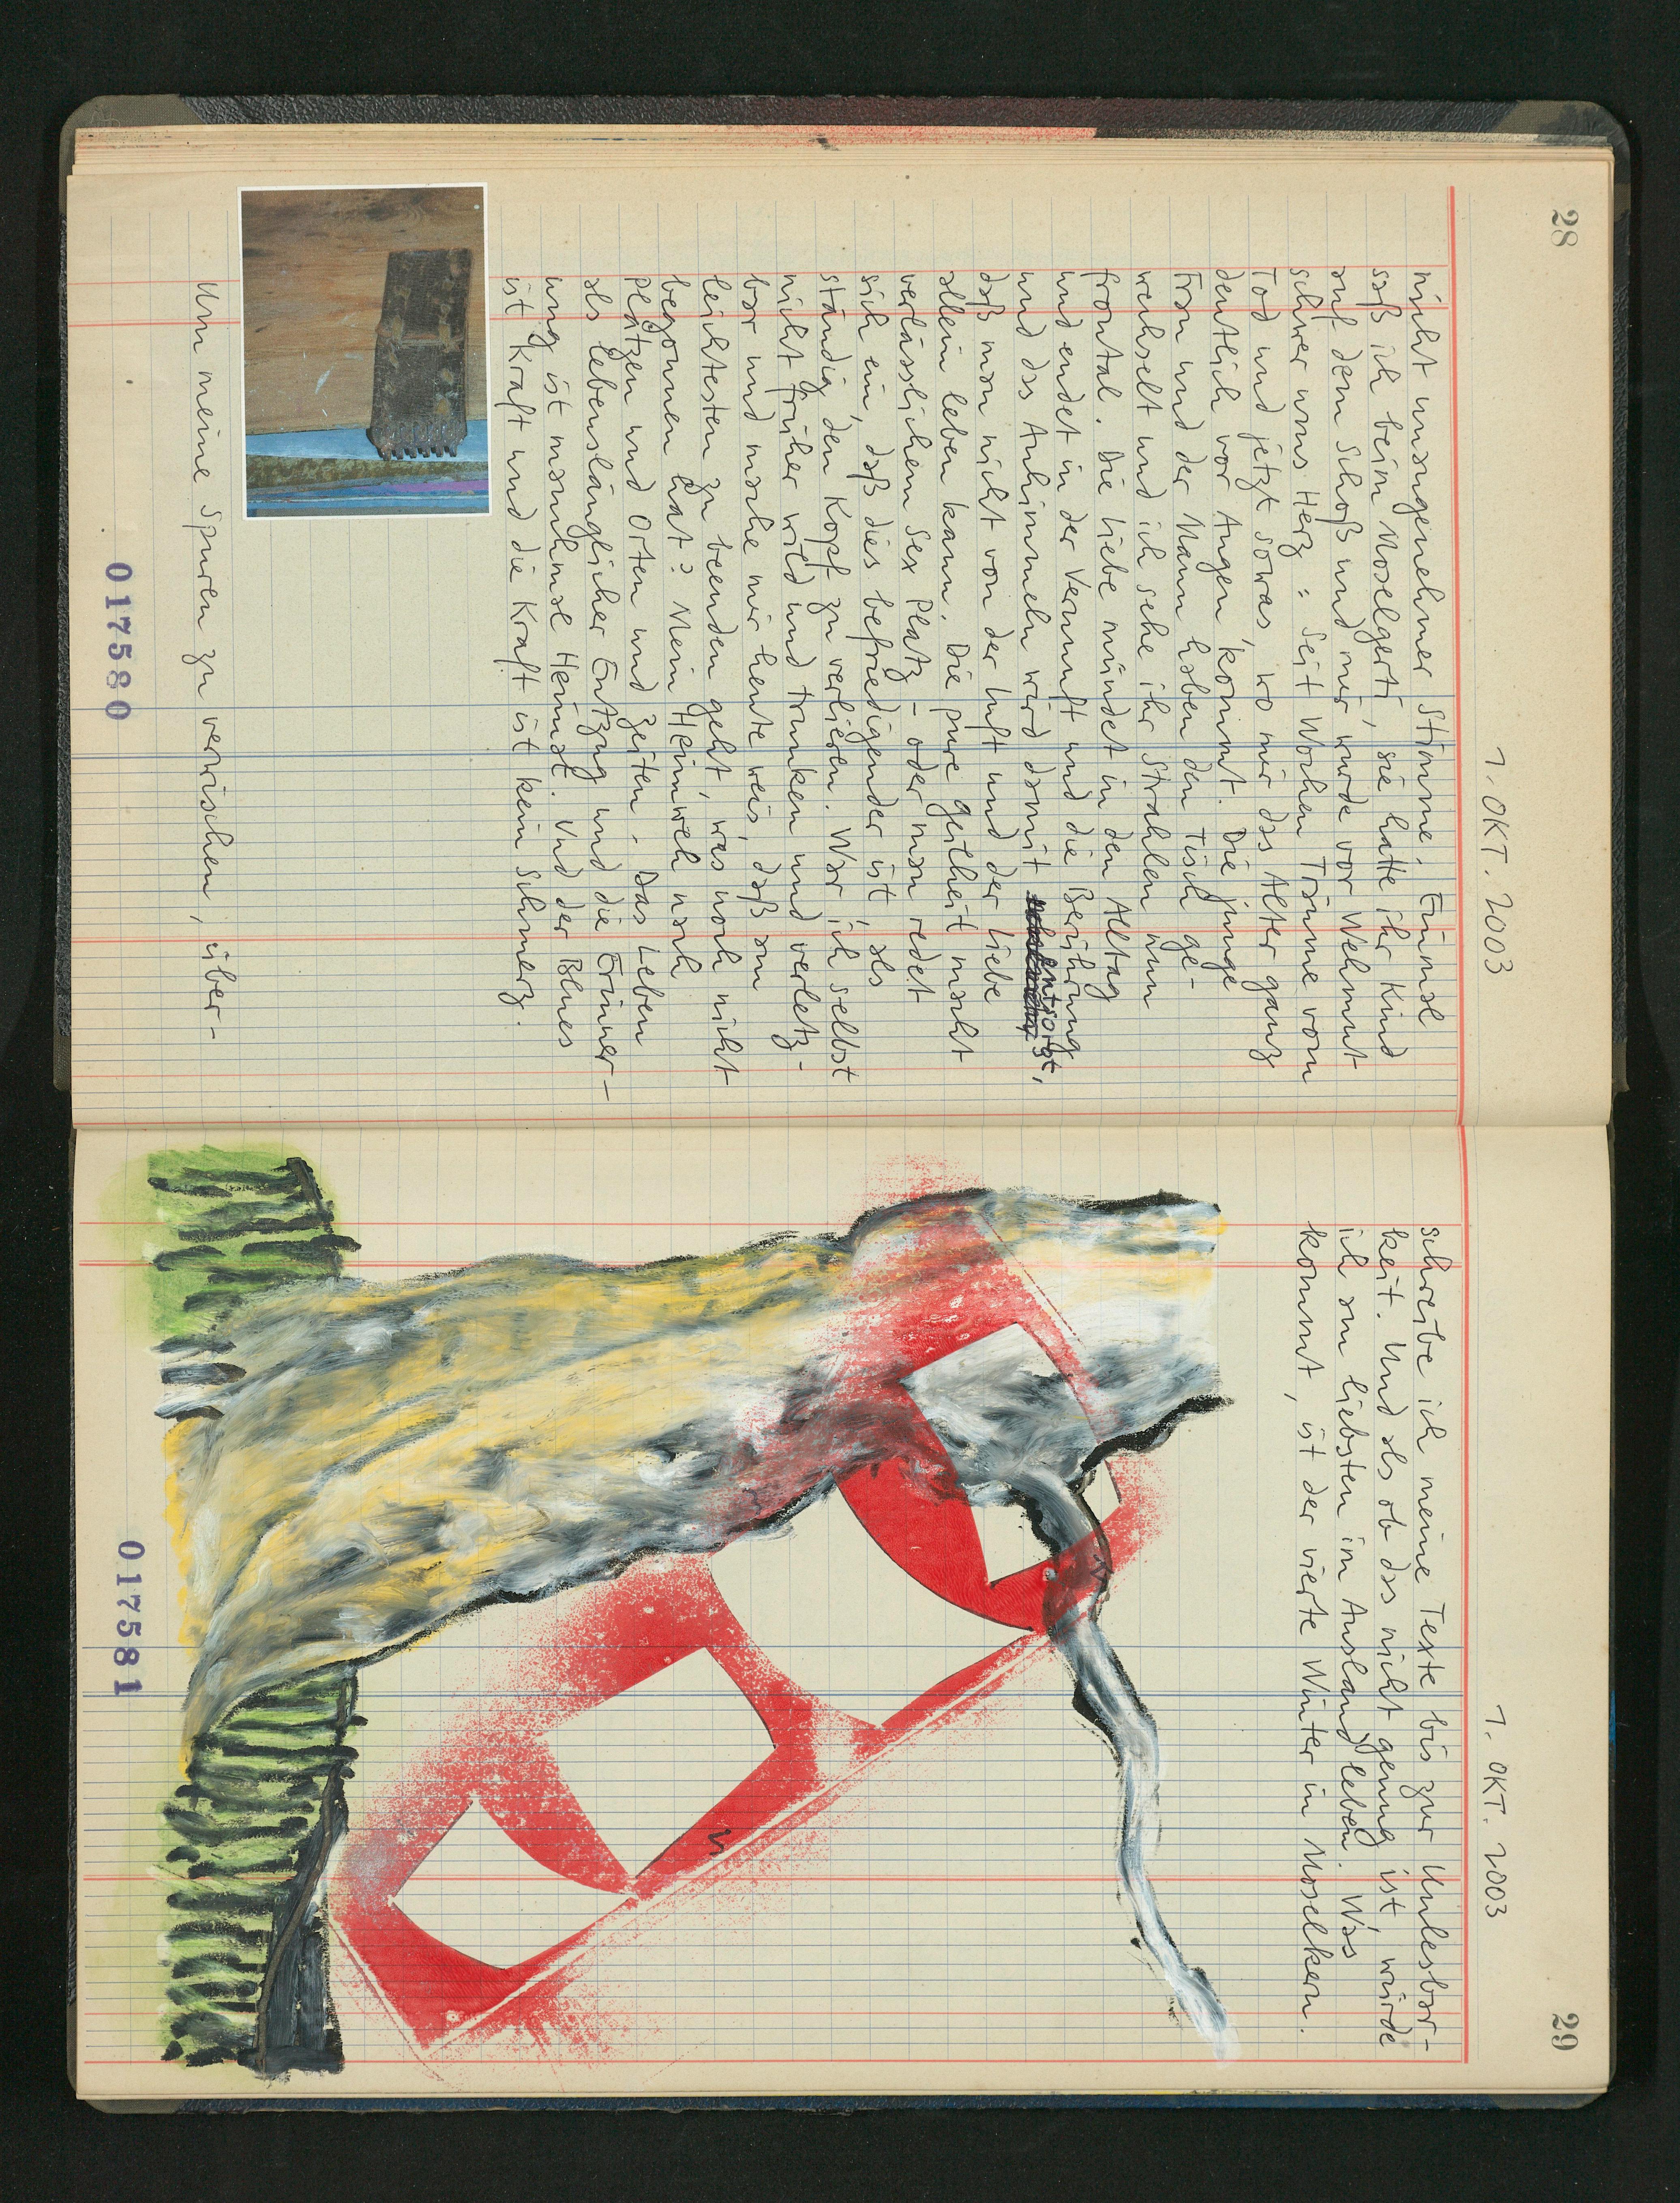 28
1. OKT. 2003
nicht unangenehmer Stimme. Einmal
saß ich beim Moselgarti, sie hatte ihr Kind
auf dem Schoß und mir wurde vor Wehmut
schwer ums Herz: Seit Wochen Träume vom
Tod und jetzt sowas, wo mir das Alter ganz
deutlich vor Augen kommt. Die junge
Frau und der Mann haben den Tisch ge-
wechselt und ich sehe ihr Strahlen nun
frontal. Die Liebe mündet in den Alltag
und endet in der Vernunft und die Berührung
und das Anhimmeln wird damit entsorgt,
daß man nicht von der Luft und der Liebe
allein leben kann. Die pure Geilheit macht
verlässlichem Sex Platz – oder man redet
sich ein, daß dies befriedigender ist, als
ständig den Kopf zu verlieren. War ich selbst
nicht früher wild und trunken und verletz-
bar und mache mir heute weis, daß am
leichtesten zu beenden geht, was noch nicht
begonnen hat? Mein Heimweh nach
Plätzen und Orten und Zeiten. Das Leben
als lebenslänglicher Entzug und die Erinner-
ung ist manchmal Heimat. Und der Blues
ist Kraft und die Kraft ist kein Schmerz.
Um meine Spuren zu verwischen, über-
017580
29
1. OKT. 2003
schreibe ich meine Texte bis zur Unlesbar-
keit. Und als ob das nicht genug ist, würde
ich am liebsten im Ausland leben. Was
kommt, ist der vierte Winter in Moselkern.
017581